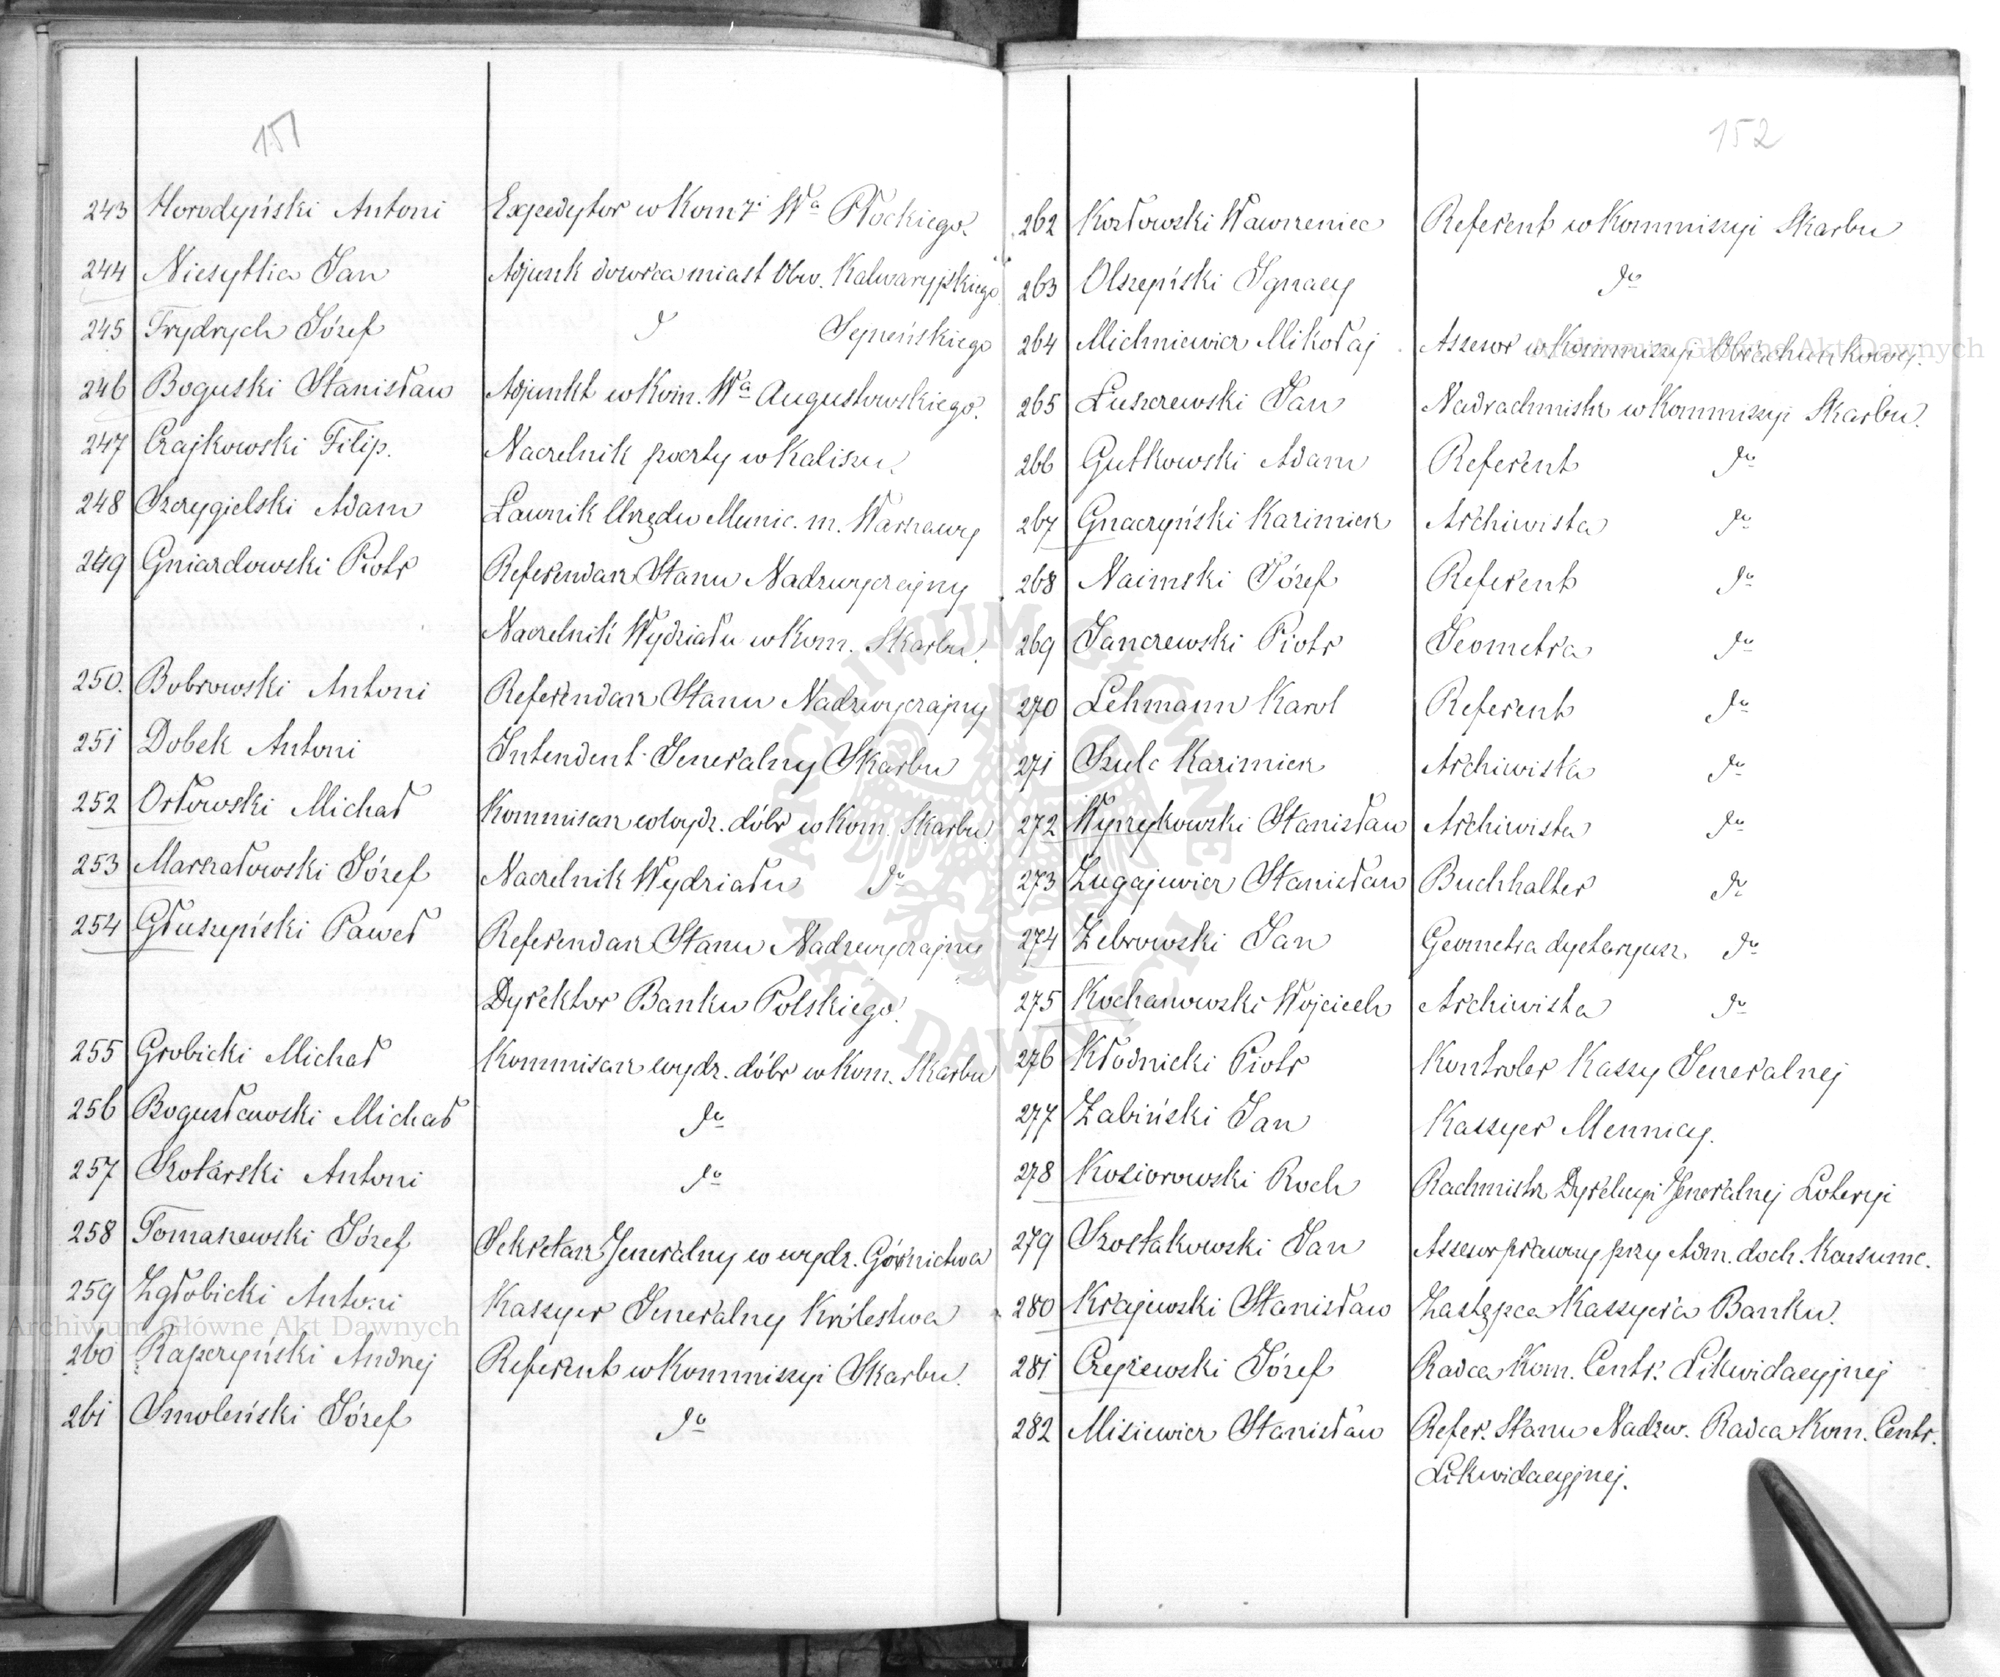 151
243 Horodyński Antoni Expedytor w Kom. Wa Płockiego.
244 Niesytlia Jan Adjunk dozorca miast Obw. Kalwaryjskiego
245 Frydrych Józef do Sejneńskiego
246 Boguski Stanisław Adjunkt w Kom. Wa Augustowskiego.
247 Czajkowski Filip. Naczelnik poczty w Kaliszu.
248 Szczygielski Adam Ławnik Urzędu Munic. m. Warszawy
249 Gniazdowski Piotr Referendarz Stanu Nadzwyczajny
Naczelnik Wydziału w Kom. Skarbu.
250. Bobrowski Antoni Referendarz Stanu Nadzwyczajny
251 Dobek Antoni Intendent Jeneralny Skarbu
252 Orłowski Michał Kommisarz wydz. dóbr w Kom. Skarbu
253 Marszałowski Józef Naczelnik Wydziału do
254 Głuszyński Paweł Referendarz Stanu Nadzwyczajny
Dyrektor Banku Polskiego.
255 Grobicki Michał Kommisarz wydz. dóbr w Kom. Skarbu
256 Bogusławski Michał do
257 Szotarski Antoni do
258 Tomaszewski Józef Sekretarz Jeneralny w wydz. Górnictwa
259 Zgłobicki Antoni Kassyer Jeneralny Królestwa
260 Kapczyński Andrzej Referent w Kommissyi Skarbu.
261 Smoleński Józef do
152
262 Kozłowski Wawrzeniec Referent w Kommissyi Skarbu
263 Olszyński Ignacy do
264 Michniewicz Mikołaj Assesor w Kommissyi Obrachunkowej.
265 Łuszczewski Jan Nadrachmistrz w Kommissyi Skarbu.
266 Gutkowski Adam Referent do
267 Gnaczyński Kazimierz Archiwista do
268 Naimski Józef Referent do
269 Janczewski Piotr Jeometra do
270 Lehmann Karol Referent do
271 Szulc Kazimierz Archiwista do
272 Wyrzykowski Stanisław Archiwista do
273 Zugajewicz Stanisław Buchhalter do
274 Żebrowski Jan Geometra dyetaryusz. do
275 Kochanowski Wojciech Archiwista do
276 Kłodnicki Piotr Kontroler Kassy Jeneralnej
277 Żabiński Jan Kassyer Mennicy.
278 Koziorowski Roch Rachmistrz Dyrekcyi Jeneralnej Loteryi
279 Szostakowski Jan Assesor prawny przy Adm. doch. Konsumc.
280 Krajewski Stanisław Zastępca Kassyera Banku.
281 Czyżewski Józef Radca Kom. Centr. Likwidacyjnej
282 Misiewicz Stanisław Refer. Stanu Nadzw. Radca Kom. Centr.
Likwidacyjnej.
ARCHIWUM GŁÓWNE AKT DAWNYCH
Archiwum Główne Akt Dawnych
Archiwum Główne Akt Dawnych